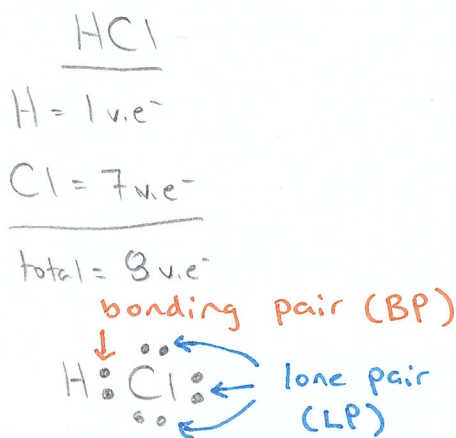 HCl
H = 1 v.e⁻
Cl = 7 v.e⁻
total = 8 v.e⁻
bonding pair (BP)
H : Cl :
lone pair
(LP)